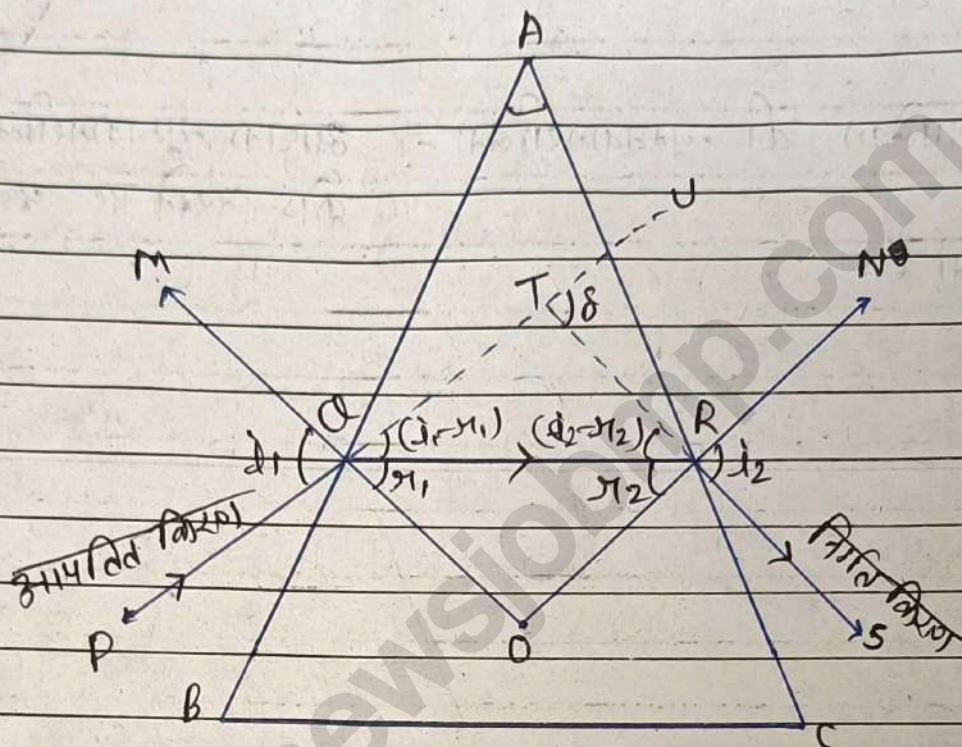 A
U
M
N
T δ
Q
(i₁-r₁)
(i₂-r₂)
R
i₁
r₁
r₂
i₂
आपतित किरण
निर्गत किरण
P
S
O
B
C
newsjobmp.com